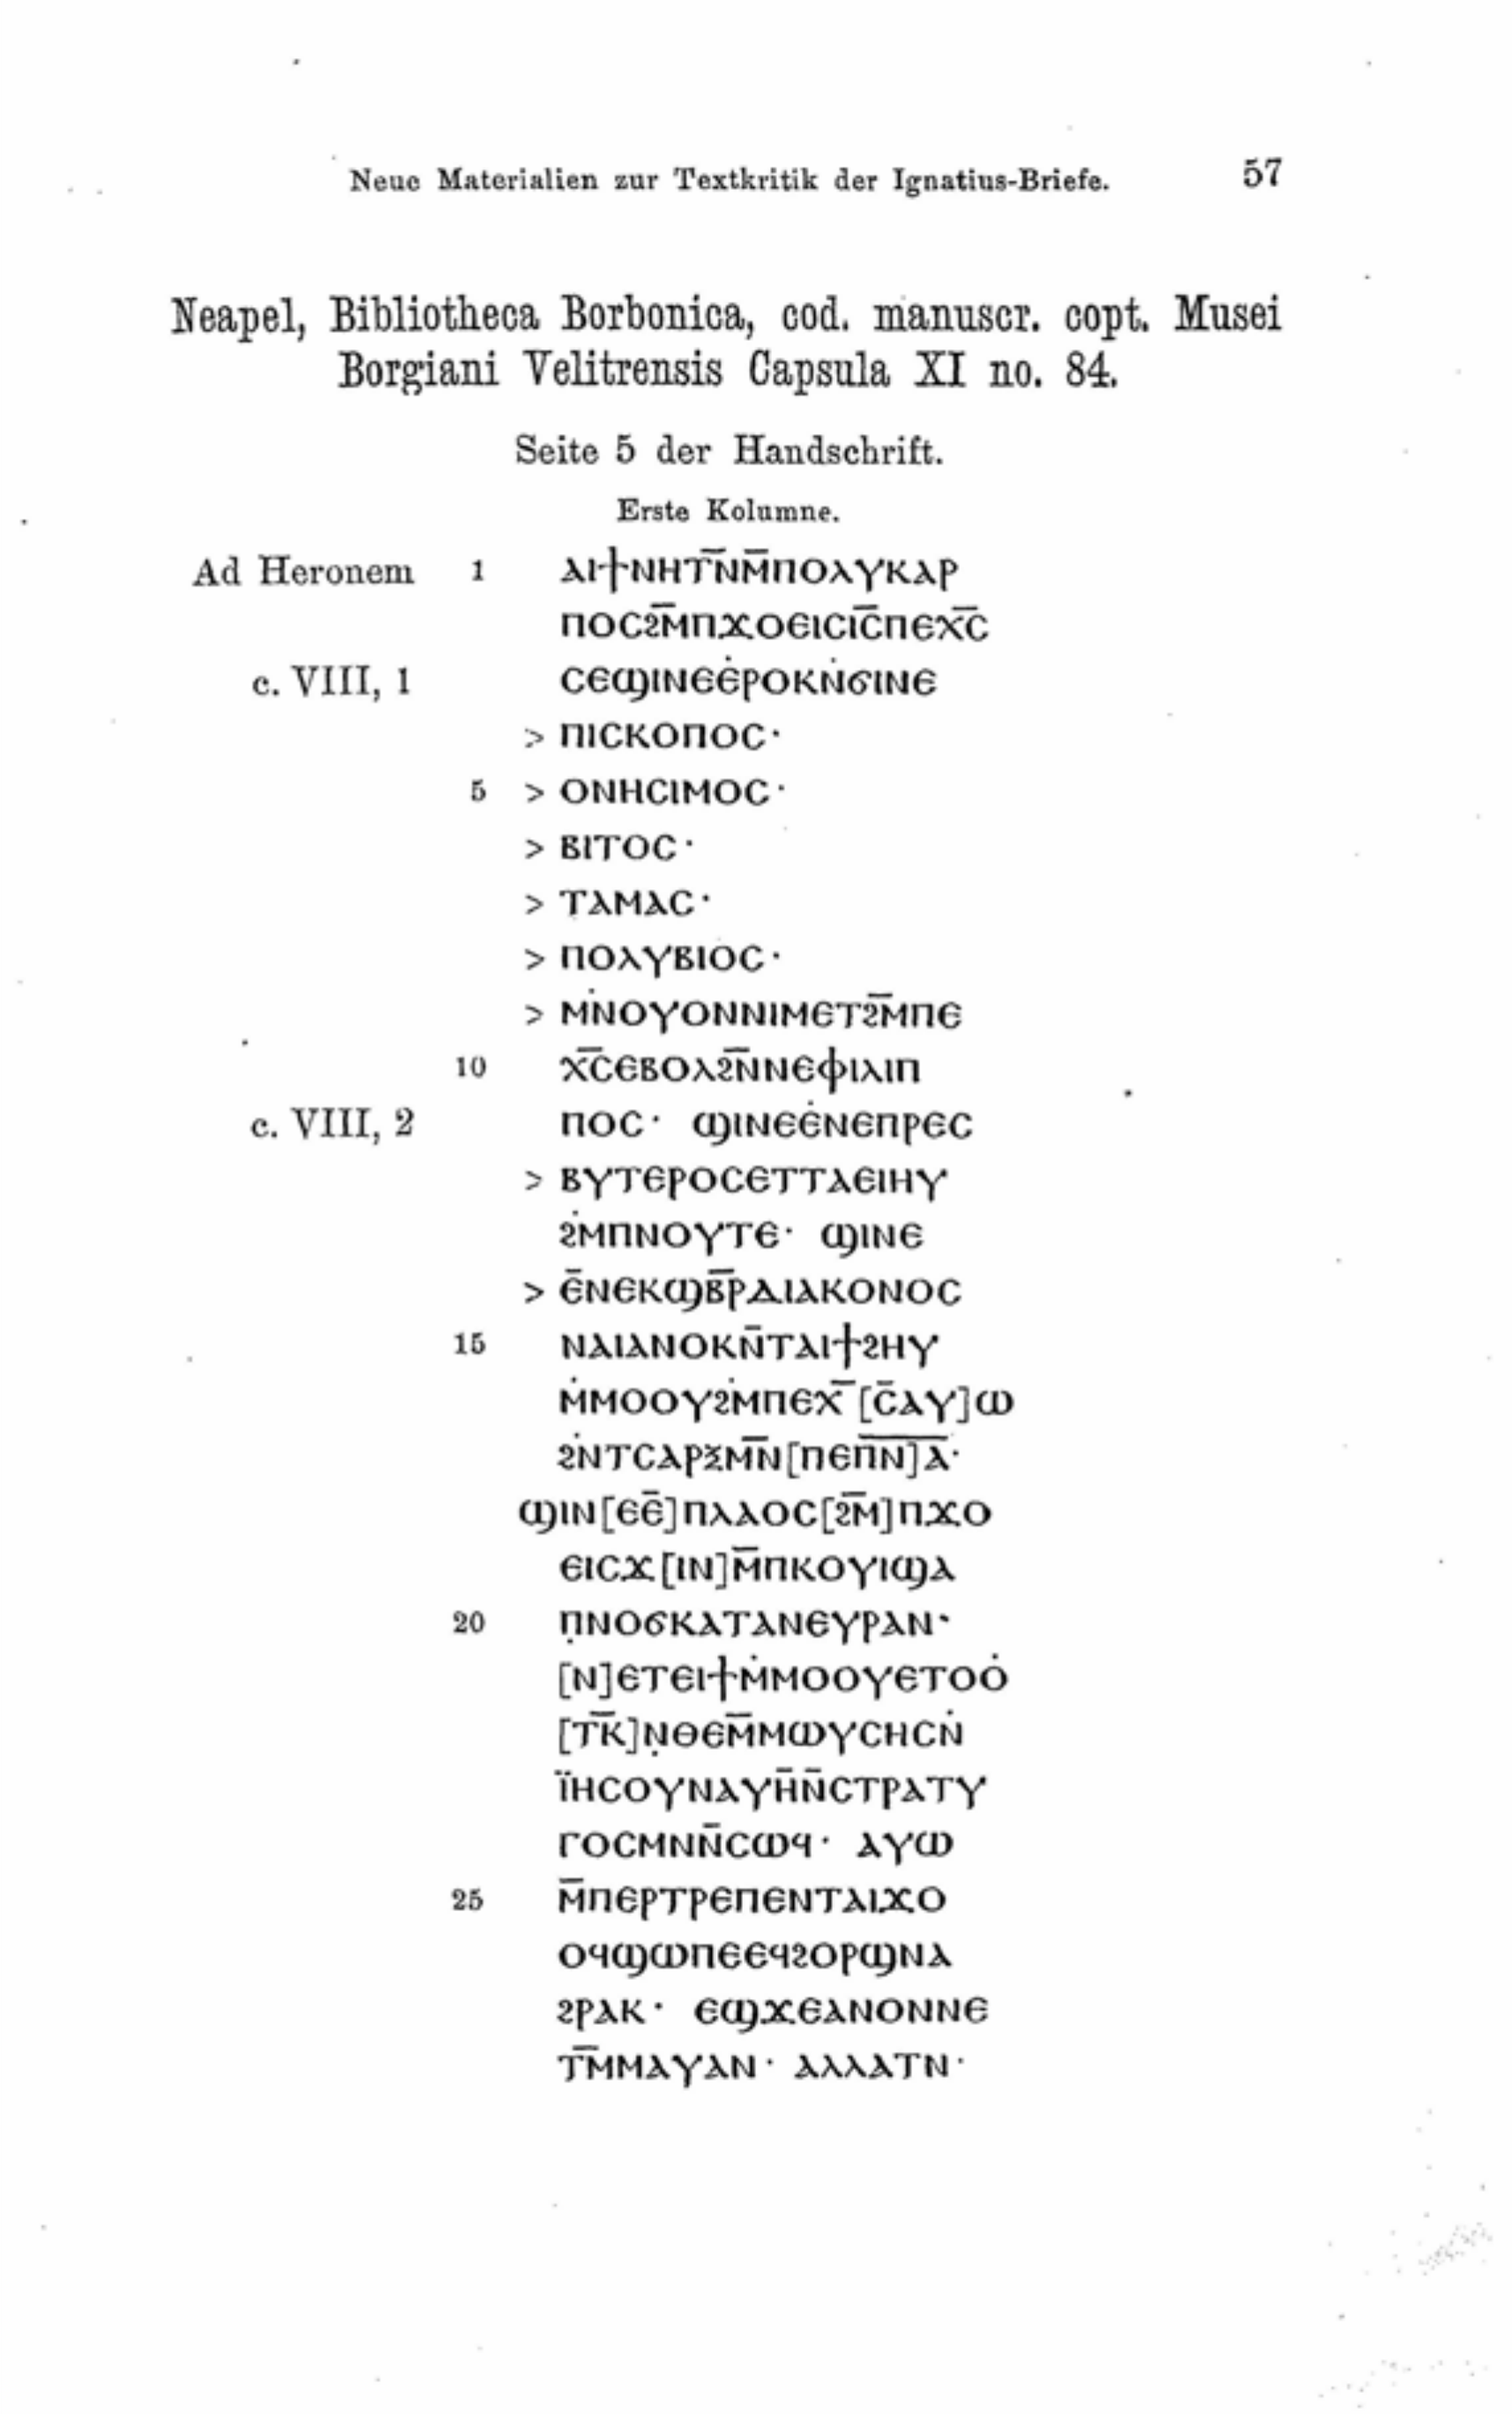 Neue Materialien zur Textkritik der Ignatius-Briefe. 57
Neapel, Bibliotheca Borbonica, cod. manuscr. copt. Musei
Borgiani Velitrensis Capsula XI no. 84.
Seite 5 der Handschrift.
Erste Kolumne.
Ad Heronem 1 ⲁⲓϯⲛⲏⲧ̅ⲛⲙ̅ⲡⲟⲗⲩⲕⲁⲣ
ⲡⲟⲥϩⲙ̅ⲡϫⲟⲉⲓⲥⲓⲥ̅ⲡⲉⲭⲥ̅
c. VIII, 1 ⲥⲉϣⲓⲛⲉⲉ̇ⲣⲟⲕⲛ̇ϭⲓⲛⲉ
> ⲡⲓⲥⲕⲟⲡⲟⲥ·
5 > ⲟⲛⲏⲥⲓⲙⲟⲥ·
> ⲃⲓⲧⲟⲥ·
> ⲧⲁⲙⲁⲥ·
> ⲡⲟⲗⲩⲃⲓⲟⲥ·
> ⲙⲛ̇ⲟⲩⲟⲛⲛⲓⲙⲉⲧϩⲙ̅ⲡⲉ
10 ⲭⲥ̅ⲉⲃⲟⲗϩⲛ̅ⲛⲉⲫⲓⲗⲓⲡ
c. VIII, 2 ⲡⲟⲥ· ϣⲓⲛⲉⲉ̇ⲛⲉⲡⲣⲉⲥ
> ⲃⲩⲧⲉⲣⲟⲥⲉⲧⲧⲁⲉⲓⲏⲩ
ϩ̇ⲙⲡⲛⲟⲩⲧⲉ· ϣⲓⲛⲉ
> ⲉ̅ⲛⲉⲕϣⲃ̅ⲣⲇⲓⲁⲕⲟⲛⲟⲥ
15 ⲛⲁⲓⲁⲛⲟⲕⲛ̅ⲧⲁⲓϯϩⲏⲩ
ⲙ̇ⲙⲟⲟⲩϩⲙ̇ⲡⲉⲭ̅[ⲥ̅ⲁⲩ]ⲱ
ϩⲛ̇ⲧⲥⲁⲣⲝⲙⲛ̅[ⲡⲉⲡ̅ⲛ̅]ⲁ̅·
ϣⲓⲛ[ⲉⲉ̅]ⲡⲗⲁⲟⲥ[ϩⲙ̅]ⲡϫⲟ
ⲉⲓⲥϫ[ⲓⲛ]ⲙ̅ⲡⲕⲟⲩⲓϣⲁ
20 ⲡ̣ⲛⲟϭⲕⲁⲧⲁⲛⲉⲩⲣⲁⲛ·
[ⲛ]ⲉⲧⲉⲓϯⲙ̇ⲙⲟⲟⲩⲉⲧⲟⲟ̇
[ⲧⲕ̅]ⲛ̣ⲑⲉⲙ̅ⲙⲱⲩⲥⲏⲥⲛ̇
ⲓ̈ⲏⲥⲟⲩⲛⲁⲩⲏ̅ⲛ̅ⲥⲧⲣⲁⲧⲩ
ⲅⲟⲥⲙⲛⲛ̅ⲥⲱϥ· ⲁⲩⲱ
25 ⲙ̅ⲡⲉⲣⲧⲣⲉⲡⲉⲛⲧⲁⲓϫⲟ
ⲟϥϣⲱⲡⲉⲉϥϩⲟⲣϣⲛⲁ
ϩⲣⲁⲕ· ⲉϣϫⲉⲁⲛⲟⲛⲛⲉ
ⲧⲙ̅ⲙⲁⲩⲁⲛ· ⲁⲗⲗⲁⲧⲛ·